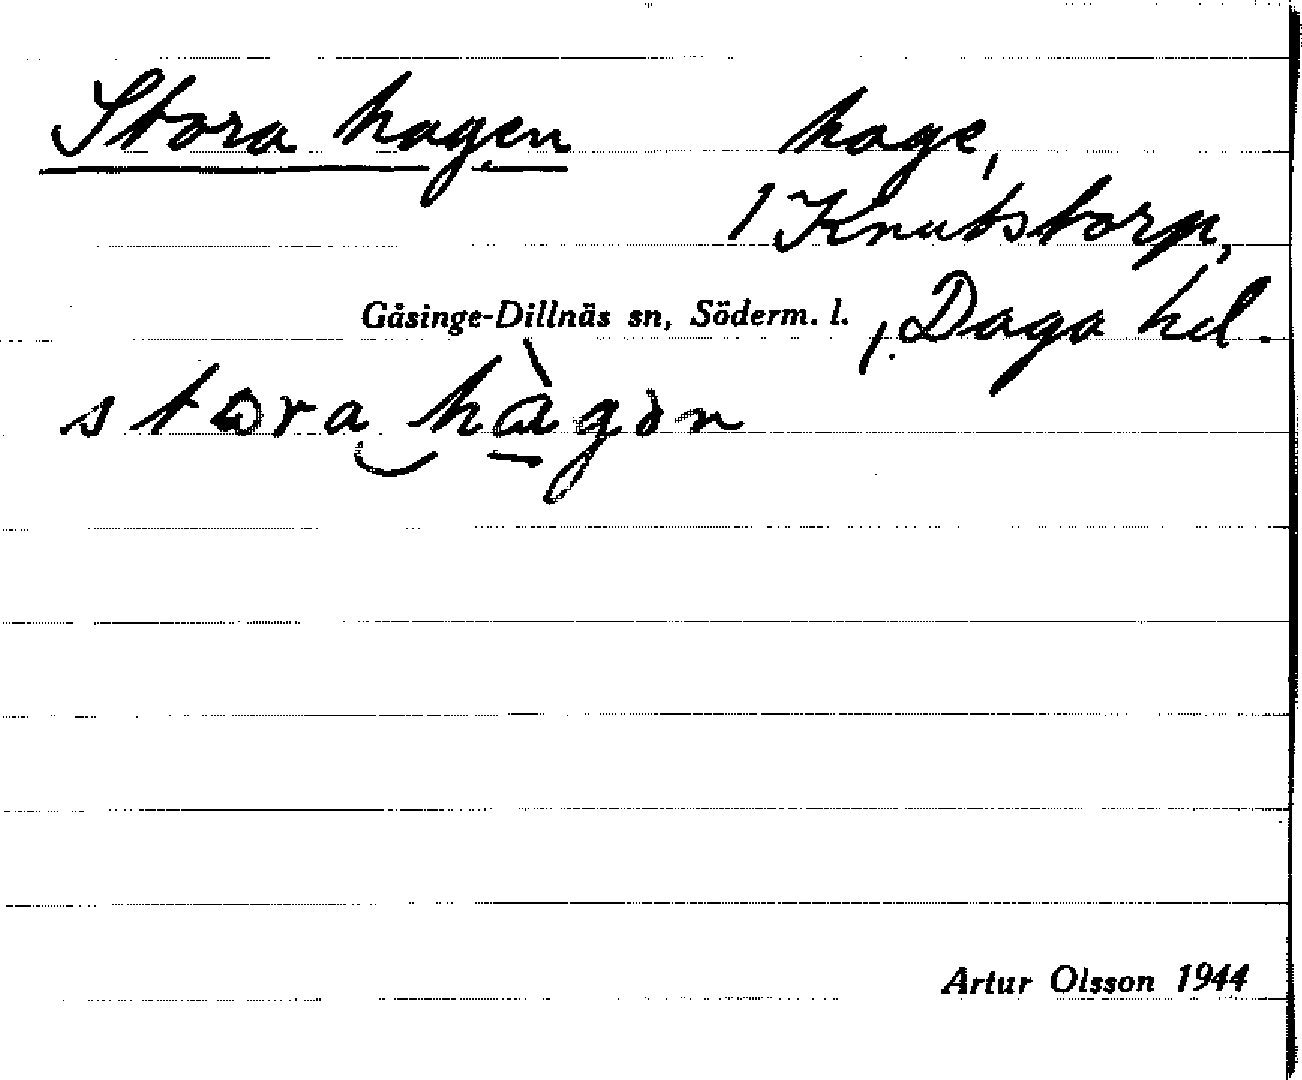 Stora hagen hage,
1 Knutstorp,
Gåsinge-Dillnäs sn, Söderm. l., Daga hd.
stora hàgən
Artur Olsson 1944